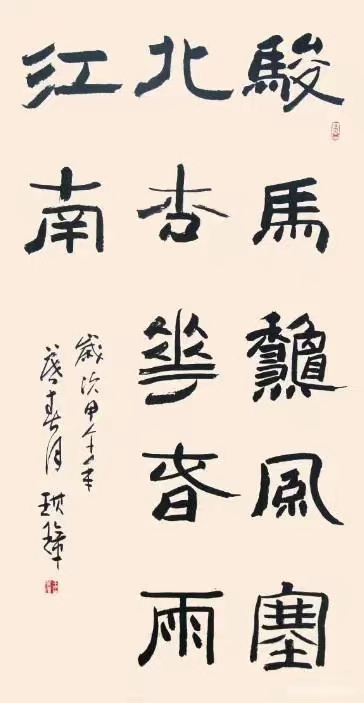 駿馬龝風塞
北杏華旾雨
江南
歲次甲午年
暮春月